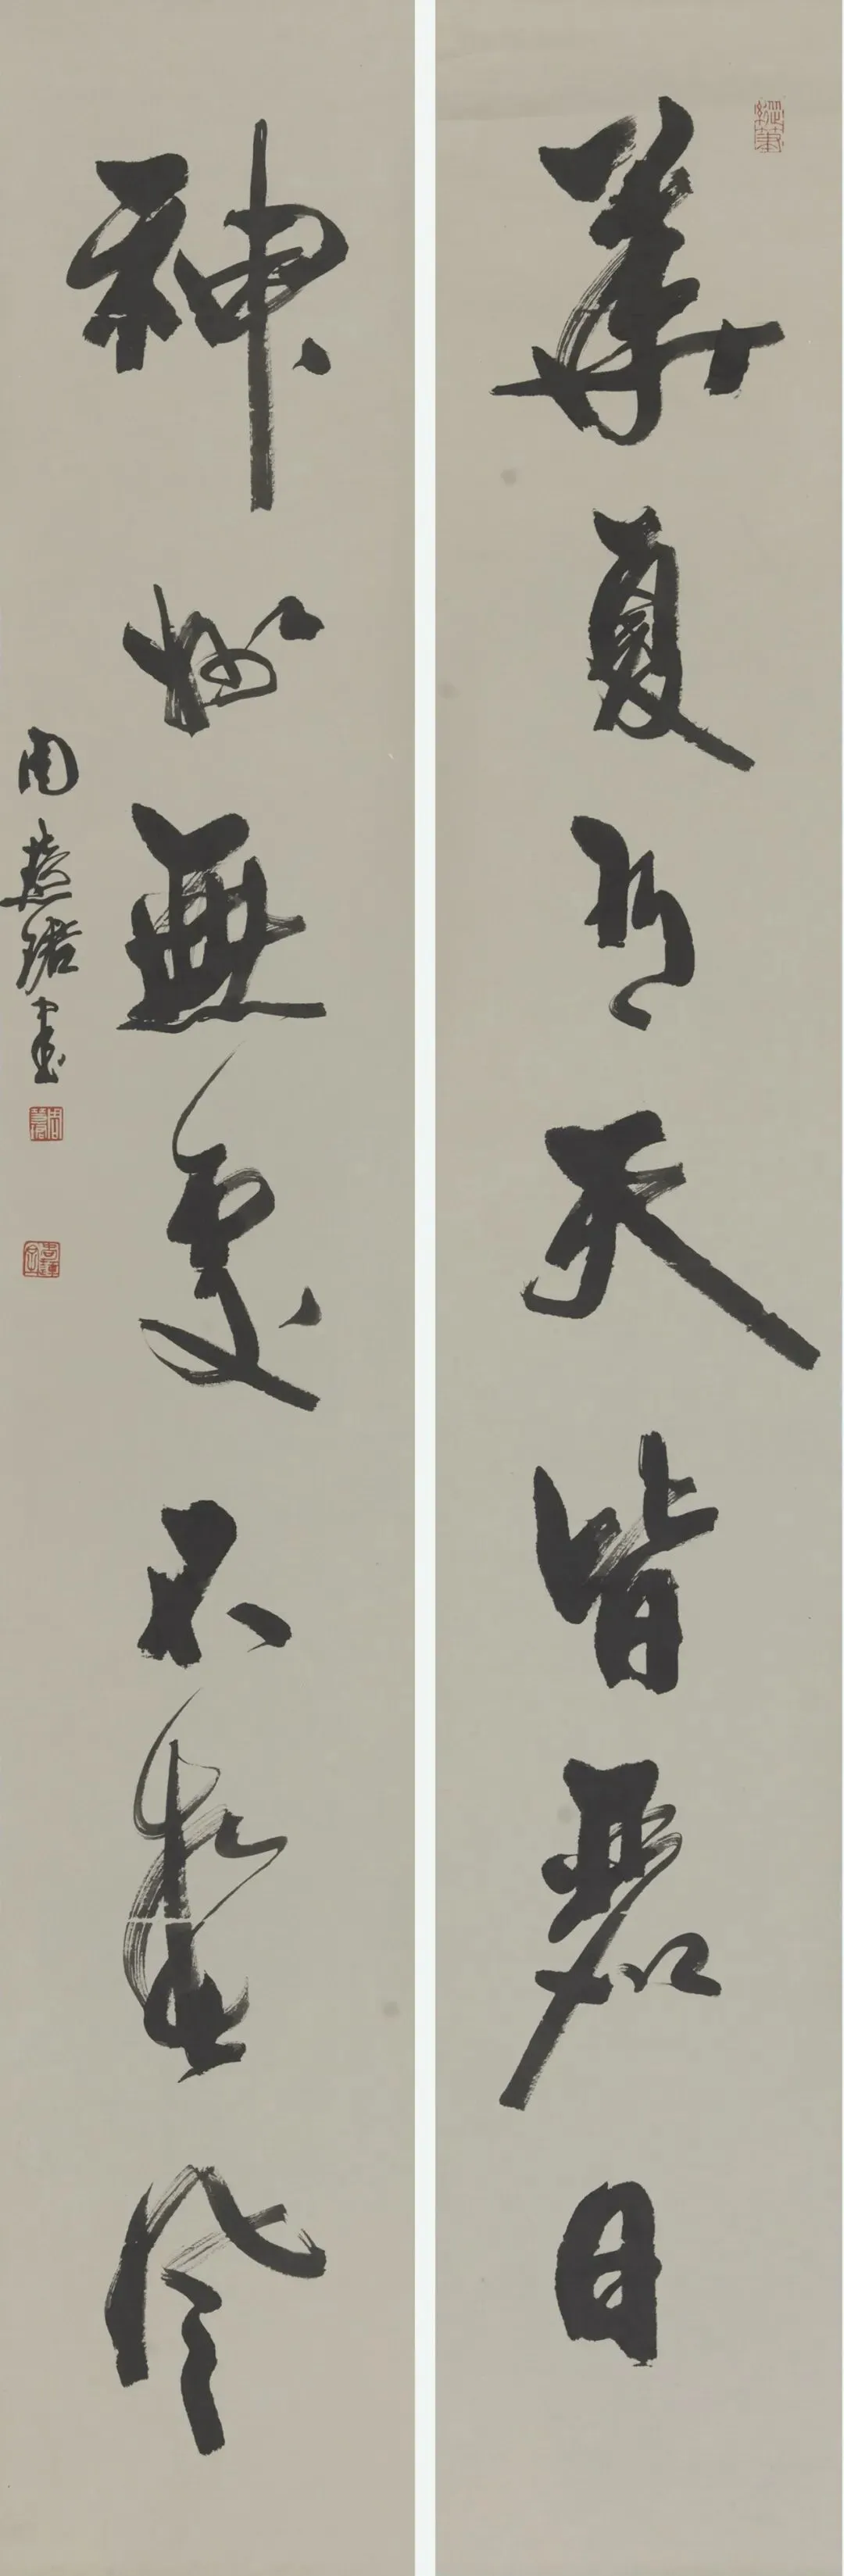 華夏有天皆麗日
神州無處不春風
周慧珺書
周慧珺